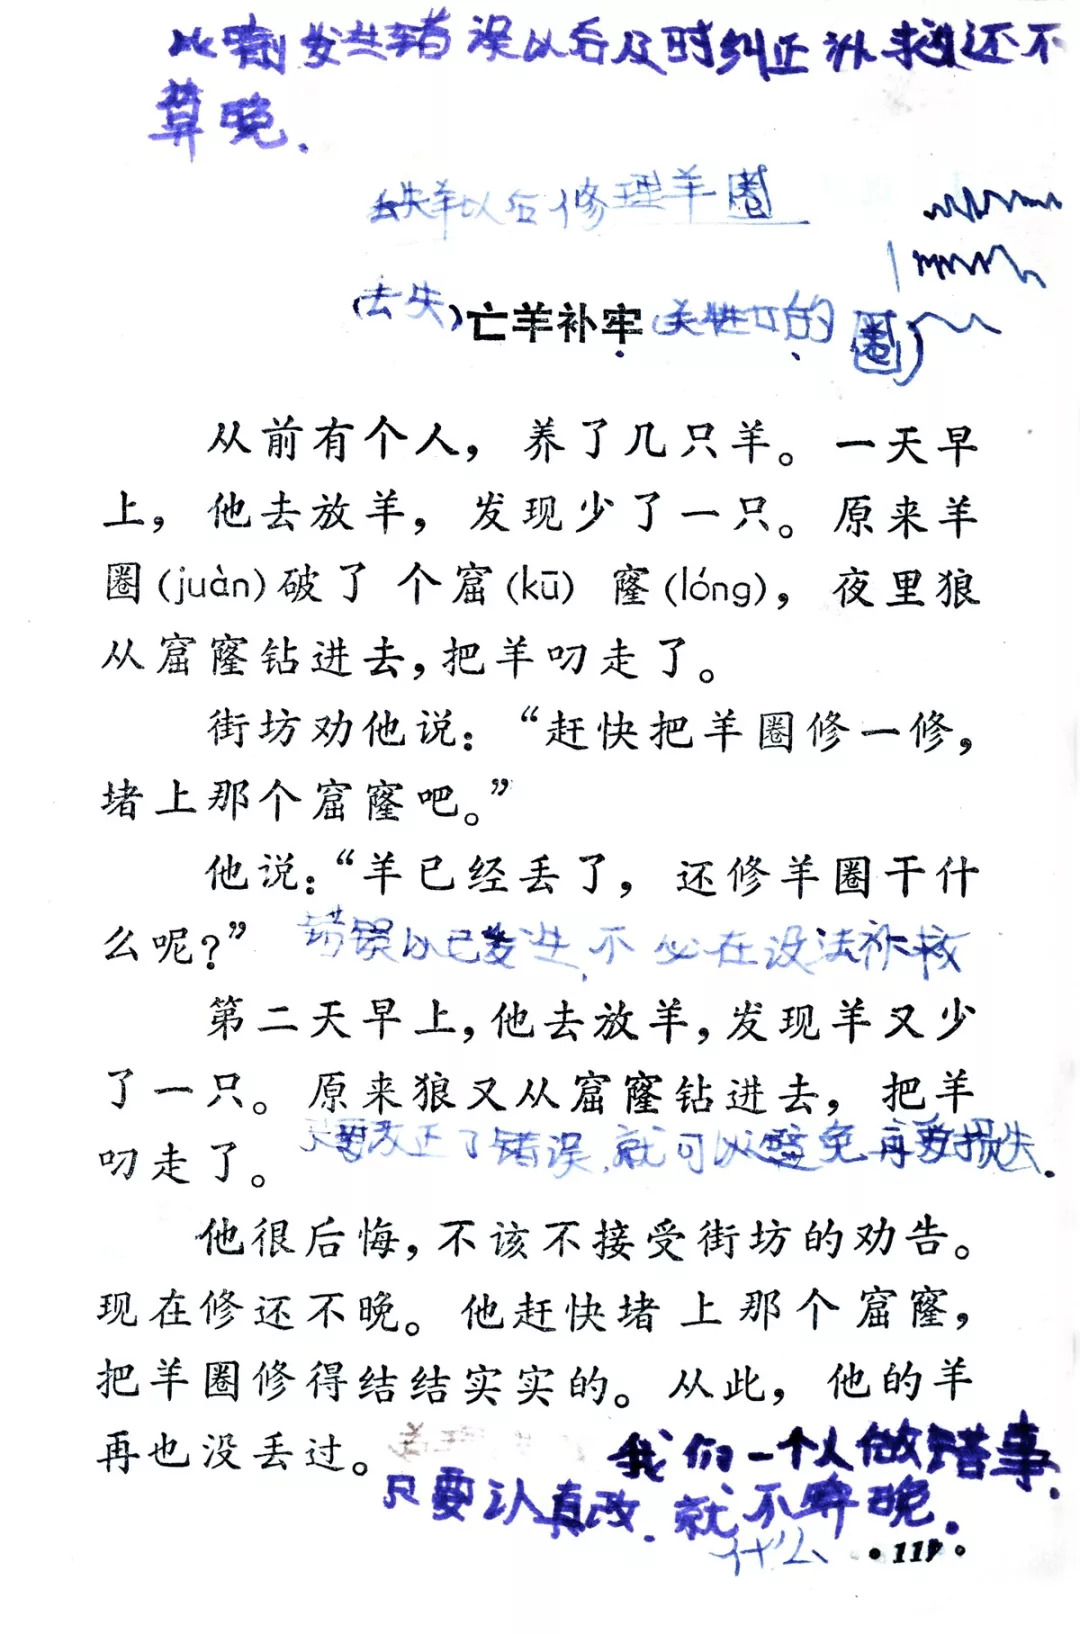 比喻发生错误以后及时纠正补救还不
算晚.
丢失羊以后修理羊圈
(去失)亡羊补牢(关牲口的圈)
从前有个人，养了几只羊。一天早
上，他去放羊，发现少了一只。原来羊
圈(juàn)破了 个窟(kū) 窿(lóng)，夜里狼
从窟窿钻进去，把羊叨走了。
街坊劝他说：“赶快把羊圈修一修，
堵上那个窟窿吧。”
他说：“羊已经丢了，还修羊圈干什
么呢？” 错误以已发生.不必在没法补救
第二天早上，他去放羊，发现羊又少
了一只。原来狼又从窟窿钻进去，把羊
叨走了。只要改正了错误.就可以避免再受损失.
他很后悔，不该不接受街坊的劝告。
现在修还不晚。他赶快堵上那个窟窿，
把羊圈修得结结实实的。从此，他的羊
再也没丢过。我们一个人做错事.
只要认真改.就不算晚.
什么
•117•